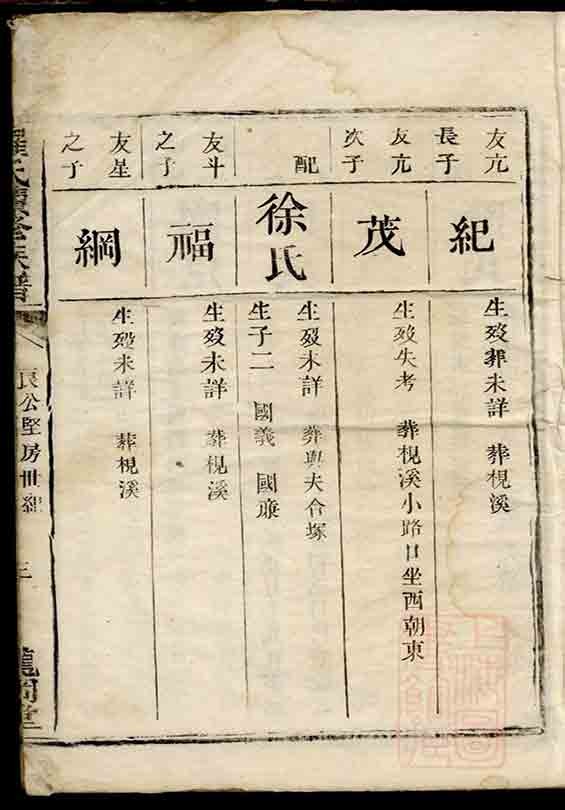 友亢長子
紀
生歿葬未詳 葬梘溪
友亢次子
茂
生歿失考 葬梘溪小路口坐西朝東
配
徐氏
生歿未詳 葬與夫合塚
生子二 國義 國
友斗之子
福
生歿未詳 葬梘溪
友星之子
綱
生歿未詳 葬梘溪
氏 族譜
良公堅房世紀
三
堂